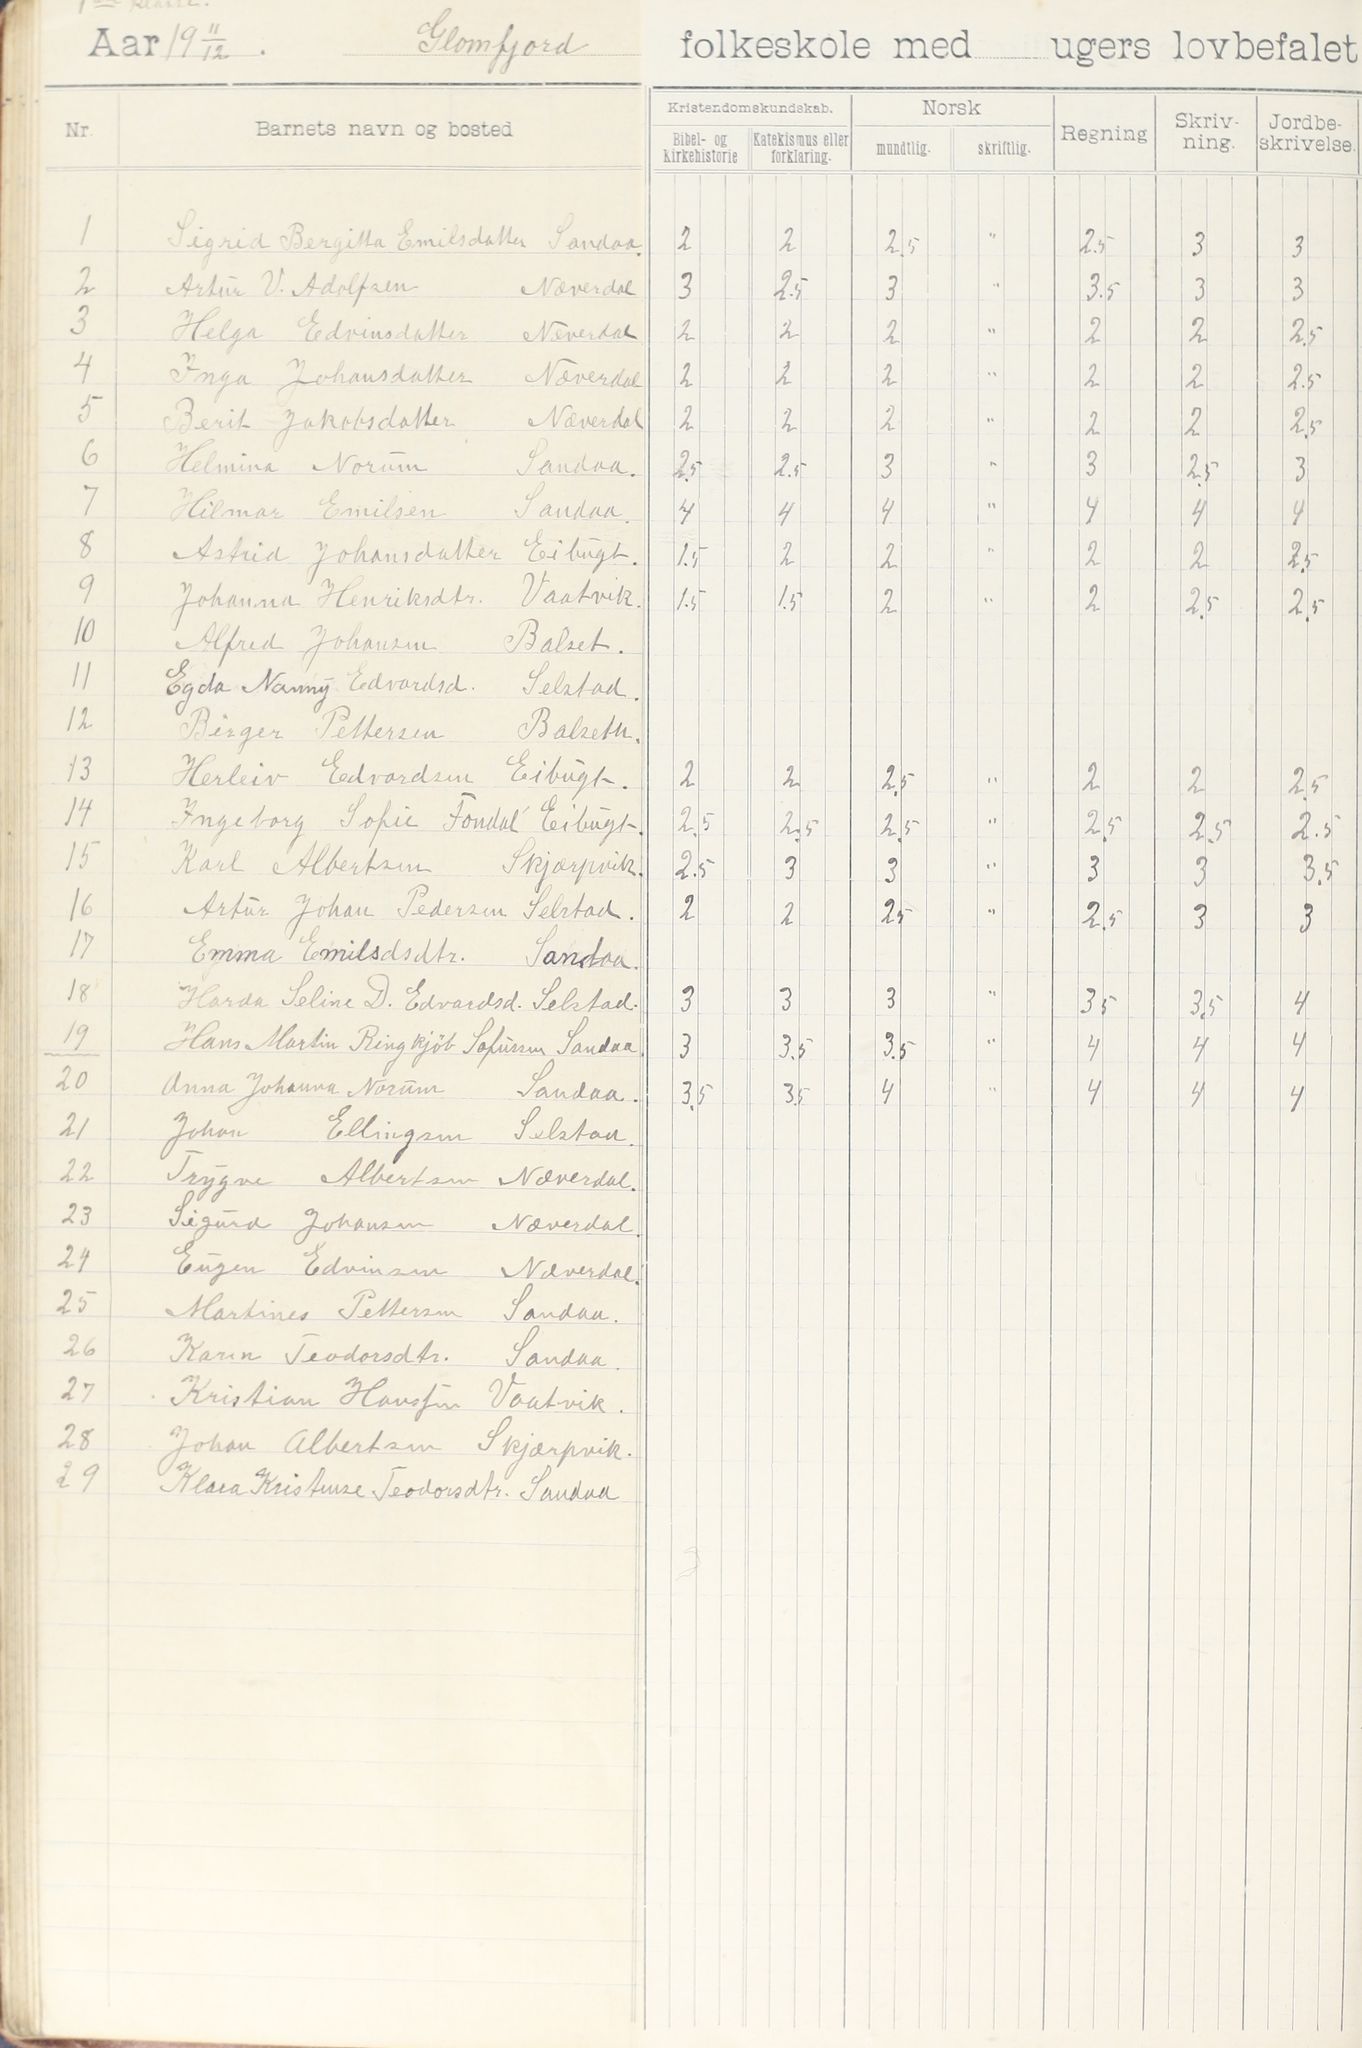 klasse.
Aar 19 11/12. Glomfjord folkeskole med ugers lovbefalet
Nr. Barnets navn og bosted Kristendomskundskab. Norsk Regning Skriv-ning. Jordbe-skrivelse.
Bibel- og kirkehistorie Katekismus eller forklaring. mundtlig. skriftlig.
1 Sigrid Bergitta Emilsdatter Sandaa. 2 2 2.5 " 2.5 3 3
2 Artur V. Adolfsen Næverdal 3 2.5 3 " 3.5 3 3
3 Helga Edvinsdatter Næverdal 2 2 2 " 2 2 2.5
4 Inga Johansdatter Næverdal 2 2 2 " 2 2 2.5
5 Berit Jakobsdatter Næverdal 2 2 2 " 2 2 2.5
6 Helmina Norum Sandaa. 2.5 2.5 3 " 3 2.5 3
7 Hilmar Emilsen Sandaa. 4 4 4 " 4 4 4
8 Astrid Johansdatter Eibugt. 1.5 2 2 " 2 2 2.5
9 Johanna Henriksdtr. Vaatvik. 1.5 1.5 2 " 2 2.5 2.5
10 Alfred Johansen Balset.
11 Egda Nanny Edvardsd. Selstad.
12 Birger Pettersen Balseth.
13 Herleiv Edvardsen Eibugt. 2 2 2.5 " 2 2 2.5
14 Ingeborg Sofie Fondal Eibugt. 2.5 2.5 2.5 " 2.5 2.5 2.5
15 Karl Albertsen Skjærpvik. 2.5 3 3 " 3 3 3.5
16 Artur Johan Pedersen Selstad. 2 2 2.5 " 2.5 3 3
17 Emma Emilsdsdtr. Sandaa.
18 Harda Seline D. Edvardsd. Selstad. 3 3 3 " 3.5 3.5 4
19 Hans Martin Ringkjöb Sofussen Sandaa. 3 3.5 3.5 " 4 4 4
20 Anna Johanna Norum Sandaa. 3.5 3.5 4 " 4 4 4
21 Johan Ellingsen Selstad.
22 Trygve Albertsen Næverdal.
23 Sigurd Johansen Næverdal.
24 Eugen Edvinsen Næverdal.
25 Martines Pettersen Sandaa.
26 Karen Teodorsdtr. Sandaa.
27 Kristian Hanssen Vaatvik.
28 Johan Albertsen Skjærpvik.
29 Klara Kristense Teodorsdtr. Sandaa